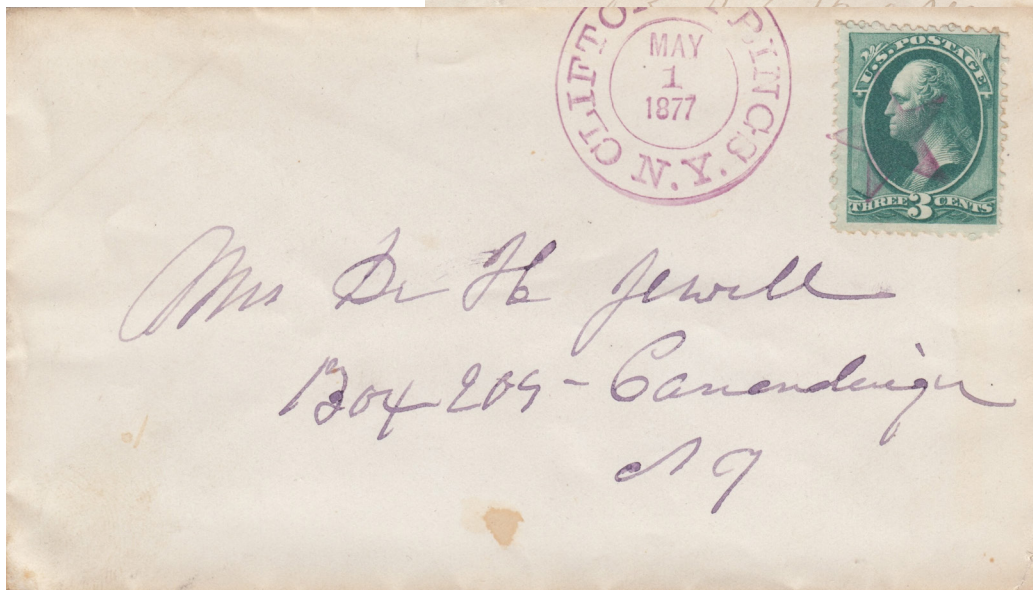 CLIFTON SPRINGS. N.Y.
MAY
1
1877
U.S. POSTAGE
THREE 3 CENTS
Mrs Dr H Jewell
Box 209 - Canandaigua
N Y